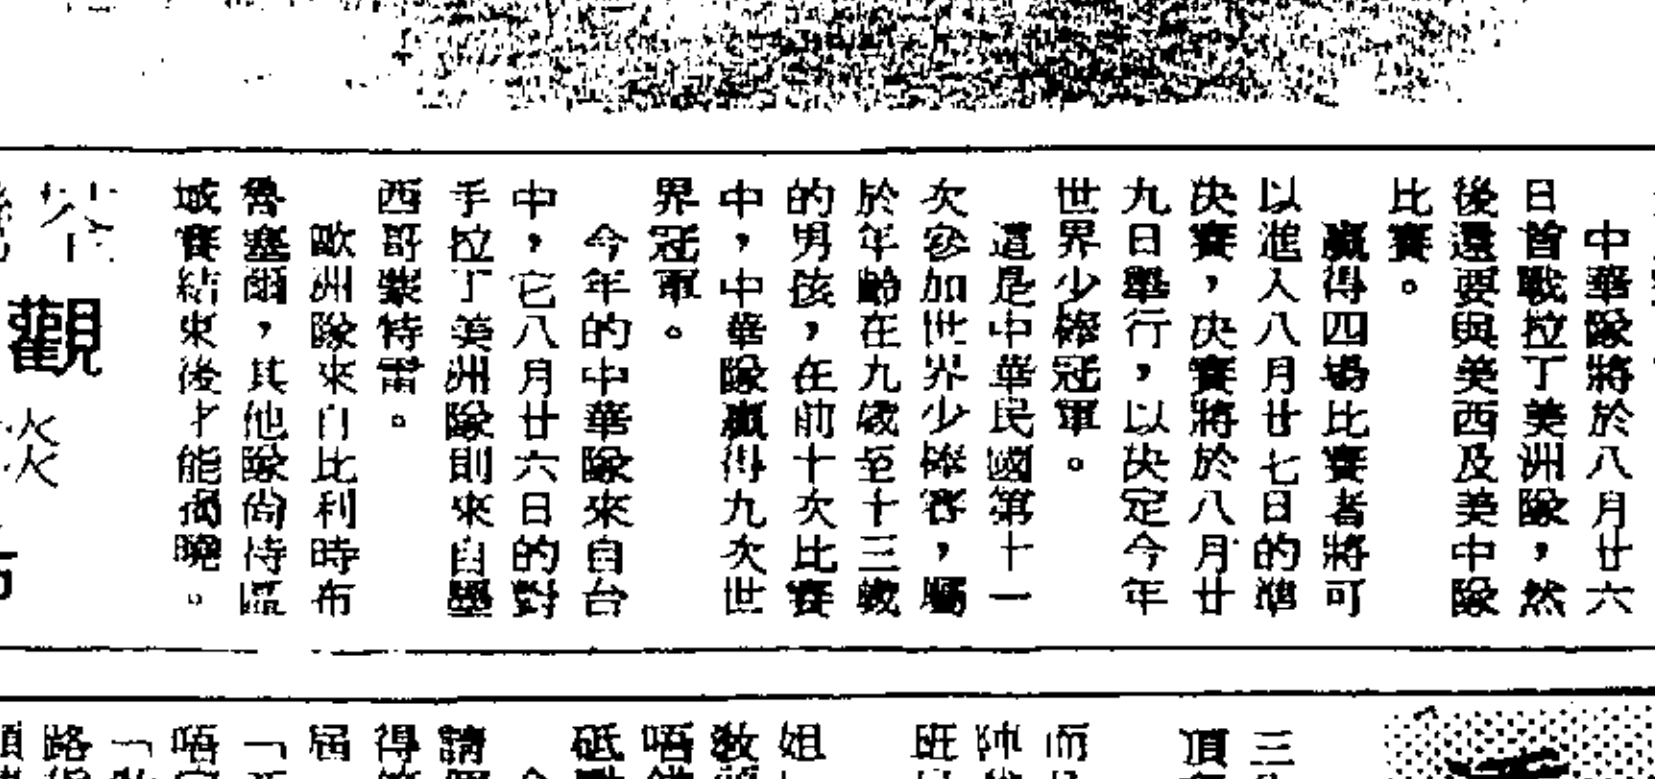 中華隊將於八月廿六
日首戰拉丁美洲隊，然
後還要與美西及美中隊
比賽。
贏得四場比賽者將可
以進入八月廿七日的準
決賽，決賽將於八月廿
九日舉行，以決定今年
世界少棒冠軍。
這是中華民國第十一
次參加世界少棒賽，屬
於年齡在九歲至十三歲
的男孩，在前十次比賽
中，中華隊贏得九次世
界冠軍。
今年的中華隊來自台
中，它八月廿六日的對
手拉丁美洲隊則來自墨
西哥蒙特雷。
歐洲隊來自比利時布
魯塞爾，其他隊尙待區
域賽結束後才能揭曉。
觀
三
頂
而
陣
班
姐
教
唔
砥
請
得
屆
「
唔
「
路